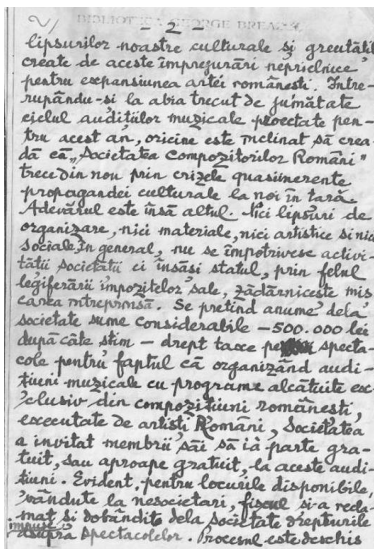 BIBLIOTECA GEORGE BREAZUL
- 2 -
lipsurilor noastre culturale și greutăți
create de aceste împrejurări neprielnice
pentru expansiunea artei românești. Între-
rupându-și la abia trecut de jumătate
ciclul audițiilor muzicale proectate pen-
tru acest an, oricine este înclinat să crea-
dă că „Societatea Compozitorilor Români"
treci din nou prin crizele quasiinerente
propagandei culturale la noi în țară.
Adevărul este însă altul. Nici lipsuri de
organizare, nici materiale, nici artistice și nici
sociale, în general, nu se împotrivesc activi-
tății societății ci însăși statul, prin felul
legiferării impozitelor sale, zădărnicește miș
carea întreprinsă. Se pretind anume dela
societate sume considerabile - 500.000 lei
după câte știm - drept taxe specta-
cole pentru faptul că organizând audi-
țiuni muzicale cu programe alcătuite ex-
clusiv din compozițiuni românești,
executate de artiști Români, Societatea
a invitat membrii săi să ia parte gra-
tuit, sau aproape gratuit, la aceste audi-
țiuni. Evident, pentru locurile disponibile,
vândute la nesocietari, fiscul și-a recla-
mat și dobândit dela societate drepturile
impuse asupra spectacolelor. Procesul este deschis